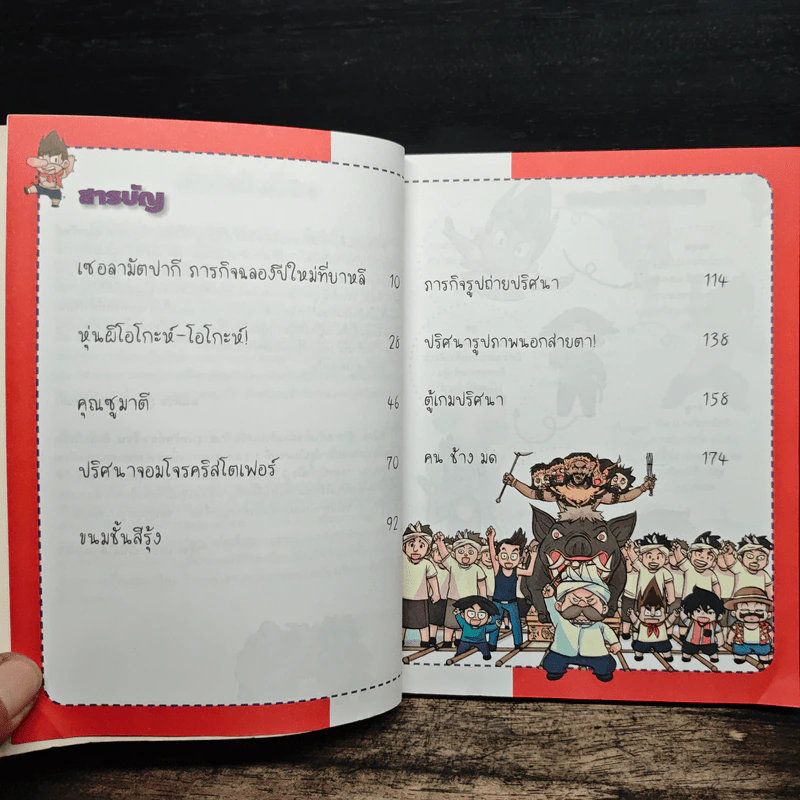 สารบัญ
เซอลามัตปากี ภารกิจฉลองปีใหม่ที่บาหลี 10
หุ่นผีโอโกะห์-โอโกะห์! 28
คุณซูมาตี 46
ปริศนาจอมโจรคริสโตเฟอร์ 70
ขนมชั้นสีรุ้ง 92
ภารกิจรูปถ่ายปริศนา 114
ปริศนารูปภาพนอกสายตา! 138
ตู้เกมปริศนา 158
คน ช้าง มด 174